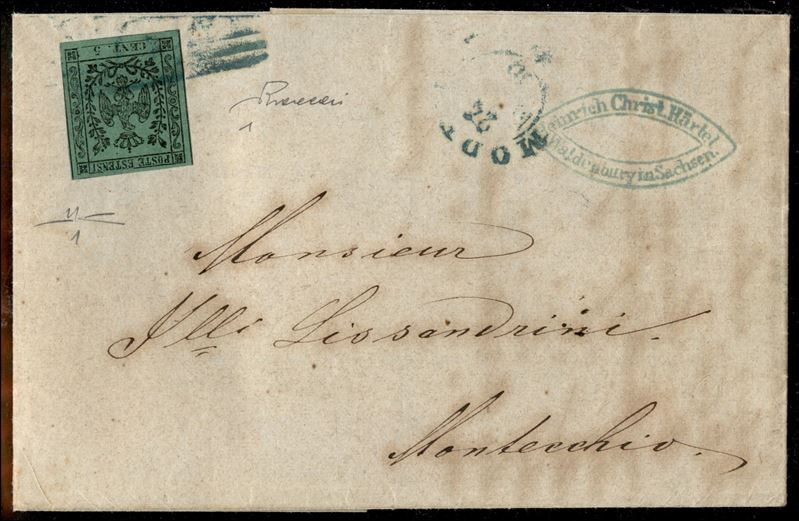 CENT. 5
POSTE ESTENSI
24
MODE
Heinrich Christ. Härtel
Waldenburg in Sachsen.
1
1
Monsieur
Flli Lissandrini.
Montecchio.